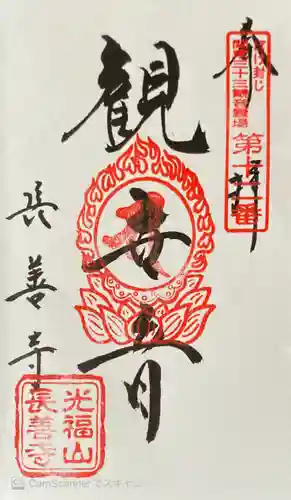 奉拝
ぼけ封じ
関東三十三観音霊場
第
番
観世音
長善寺
光福山
長善寺
CamScanner でスキャ